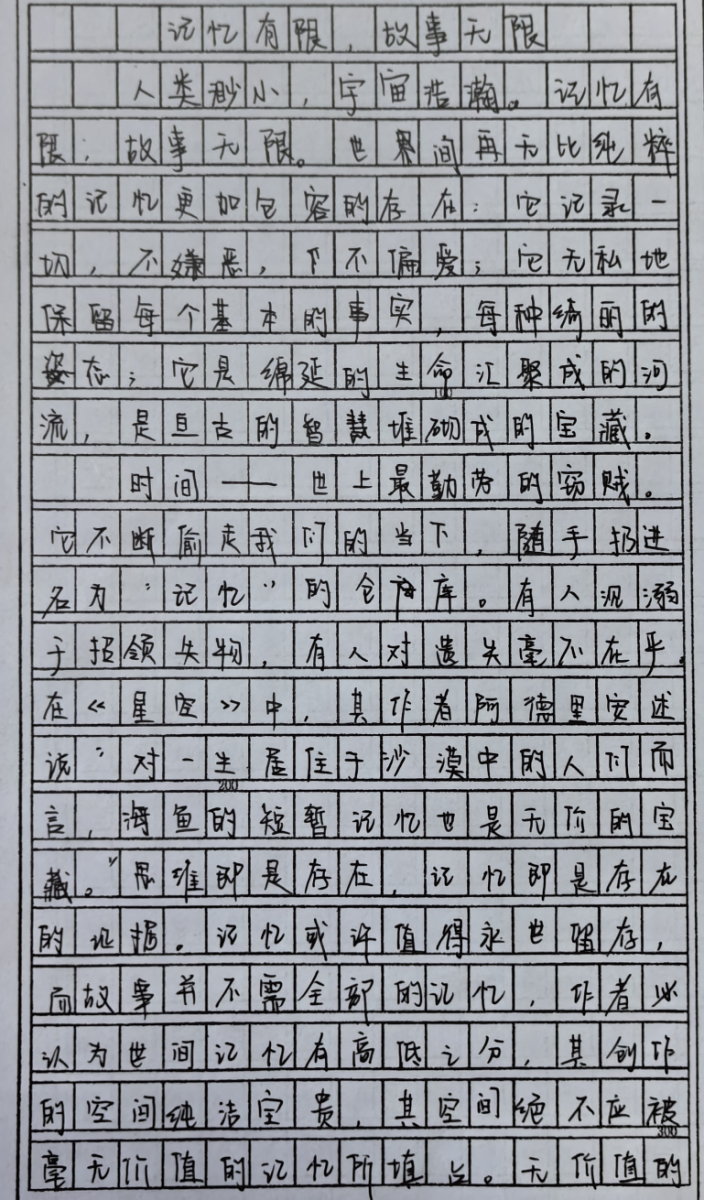 记忆有限，故事无限
人类渺小，宇宙浩瀚。记忆有
限；故事无限。世界间再无比纯粹
的记忆更加包容的存在：它记录一
切，不嫌恶，不偏爱；它无私地
保留每个基本的事实，每种绮丽的
姿态；它是绵延的生命汇聚成的河
流，是亘古的智慧堆砌成的宝藏。
时间——世上最勤劳的窃贼。
它不断偷走我们的当下，随手扔进
名为“记忆”的仓库。有人沉溺
于招领失物，有人对遗失毫不在乎。
在《星空》中，其作者阿德里安述
说“对一生居住于沙漠中的人们而
200
言，海鱼的短暂记忆也是无价的宝
藏。”思维即是存在，记忆即是存在
的证据。记忆或许值得永世留存，
而故事并不需全部的记忆，作者必
认为世间记忆有高低之分，其创作
的空间纯洁宝贵，其空间绝不应被
300
毫无价值的记忆所填占。无价值的